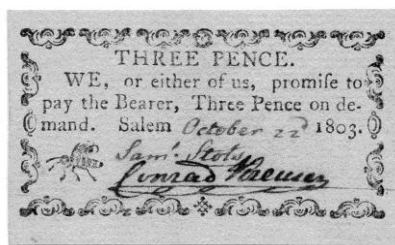 THREE PENCE.
WE, or either of us, promiſe to
pay the Bearer, Three Pence on de-
mand. Salem October 22d 1803.
Saml. Stots
Conrad Kreuser